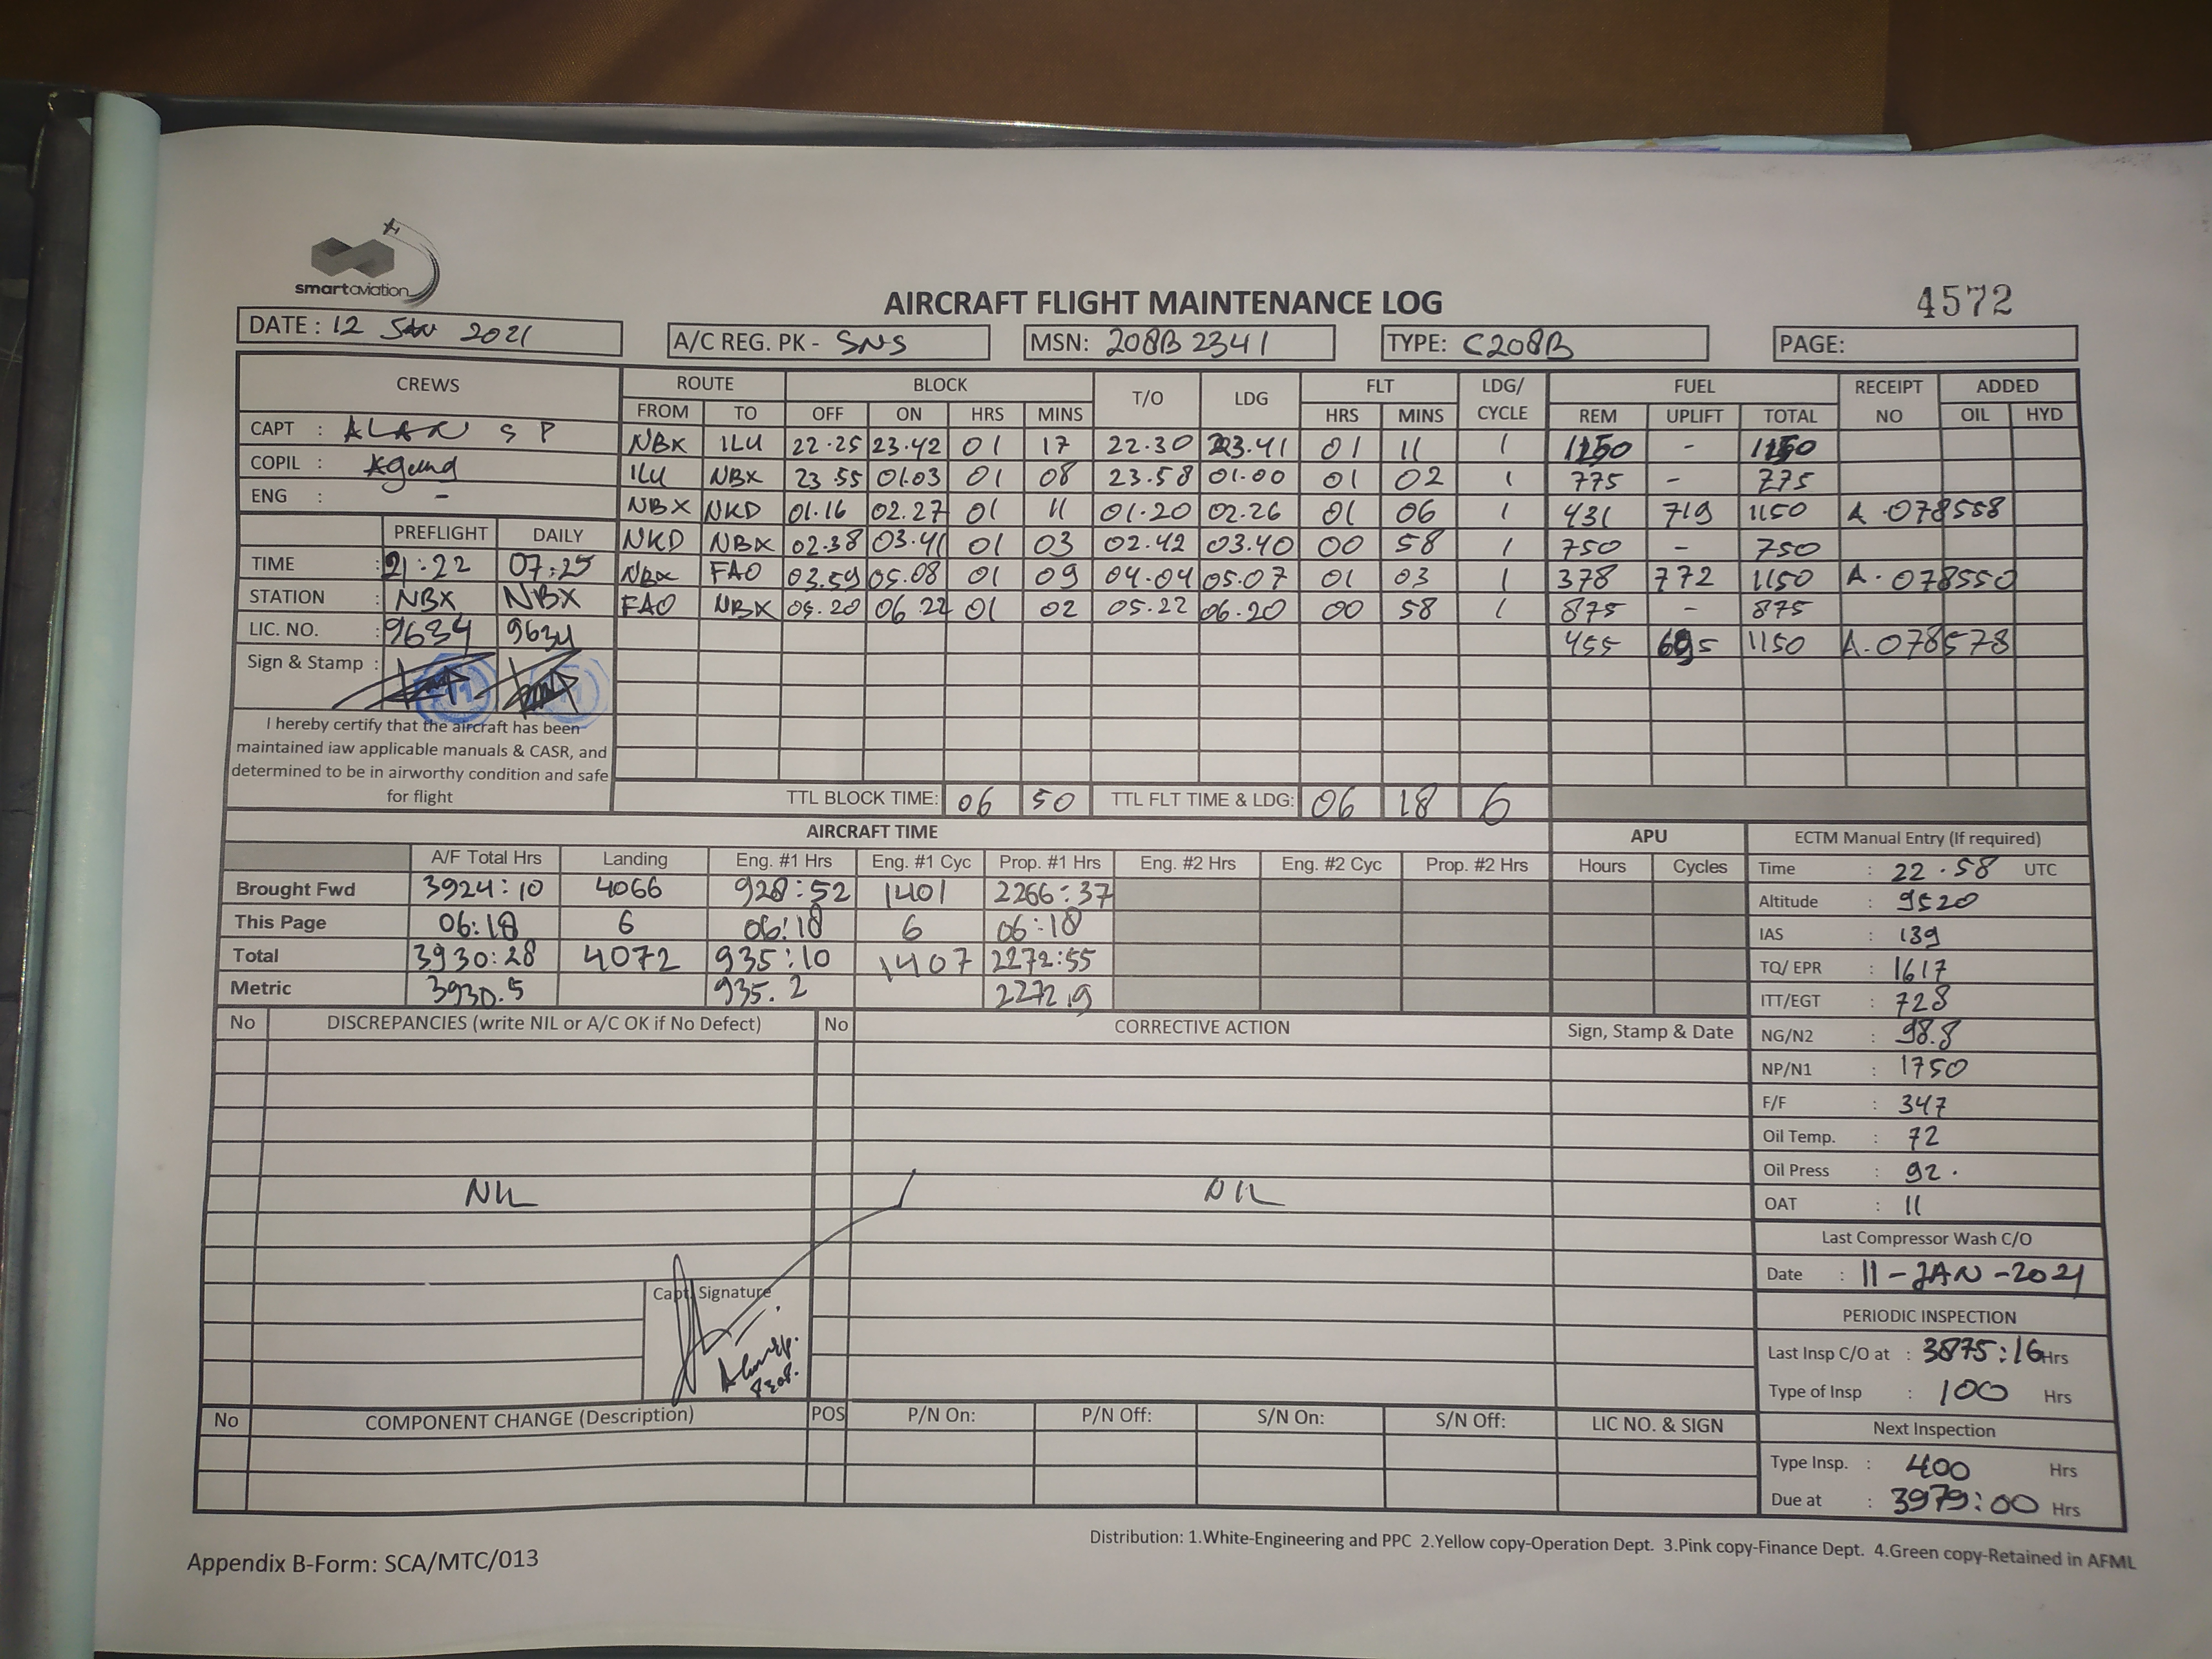 smartaviation
AIRCRAFT FLIGHT MAINTENANCE LOG
4572
DATE : 12 JAN 2021
A/C REG. PK - SNS
MSN: 208B 2341
TYPE: C208B
PAGE:
CREWS
CAPT : ALAN S P
COPIL : Agung
ENG : -
PREFLIGHT DAILY
TIME : 21:22 07:25
STATION : NBX NBX
LIC. NO. : 9634 9634
Sign & Stamp :
I hereby certify that the aircraft has been
maintained iaw applicable manuals & CASR, and
determined to be in airworthy condition and safe
for flight
ROUTE BLOCK T/O LDG FLT LDG/ CYCLE FUEL RECEIPT NO ADDED
FROM TO OFF ON HRS MINS HRS MINS REM UPLIFT TOTAL OIL HYD
NBX ILU 22.25 23.42 01 17 22.30 23.41 01 11 1 1150 - 1150
ILU NBX 23.55 01.03 01 08 23.58 01.00 01 02 1 775 - 775
NBX NKD 01.16 02.27 01 11 01.20 02.26 01 06 1 431 719 1150 A.078558
NKD NBX 02.38 03.41 01 03 02.42 03.40 00 58 1 750 - 750
NBX FAO 03.59 05.08 01 09 04.04 05.07 01 03 1 378 772 1150 A.078550
FAO NBX 05.20 06.22 01 02 05.22 06.20 00 58 1 875 - 875
455 695 1150 A.078578
TTL BLOCK TIME: 06 50 TTL FLT TIME & LDG: 06 18 6
AIRCRAFT TIME APU
A/F Total Hrs Landing Eng. #1 Hrs Eng. #1 Cyc Prop. #1 Hrs Eng. #2 Hrs Eng. #2 Cyc Prop. #2 Hrs Hours Cycles
Brought Fwd 3924:10 4066 928:52 1401 2266:37
This Page 06:18 6 06:18 6 06:18
Total 3930:28 4072 935:10 1407 2272:55
Metric 3930.5 935.2 2272.9
ECTM Manual Entry (If required)
Time : 22.58 UTC
Altitude : 9520
IAS : 139
TQ/ EPR : 1617
ITT/EGT : 728
NG/N2 : 98.8
NP/N1 : 1750
F/F : 347
Oil Temp. : 72
Oil Press : 92.
OAT : 11
Last Compressor Wash C/O
Date : 11-JAN-2021
PERIODIC INSPECTION
Last Insp C/O at : 3875:16 Hrs
Type of Insp : 100 Hrs
Next Inspection
Type Insp. : 400 Hrs
Due at : 3979:00 Hrs
No DISCREPANCIES (write NIL or A/C OK if No Defect) No CORRECTIVE ACTION Sign, Stamp & Date
NIL NIL
Capt. Signature
No COMPONENT CHANGE (Description) POS P/N On: P/N Off: S/N On: S/N Off: LIC NO. & SIGN
Distribution: 1.White-Engineering and PPC 2.Yellow copy-Operation Dept. 3.Pink copy-Finance Dept. 4.Green copy-Retained in AFML
Appendix B-Form: SCA/MTC/013